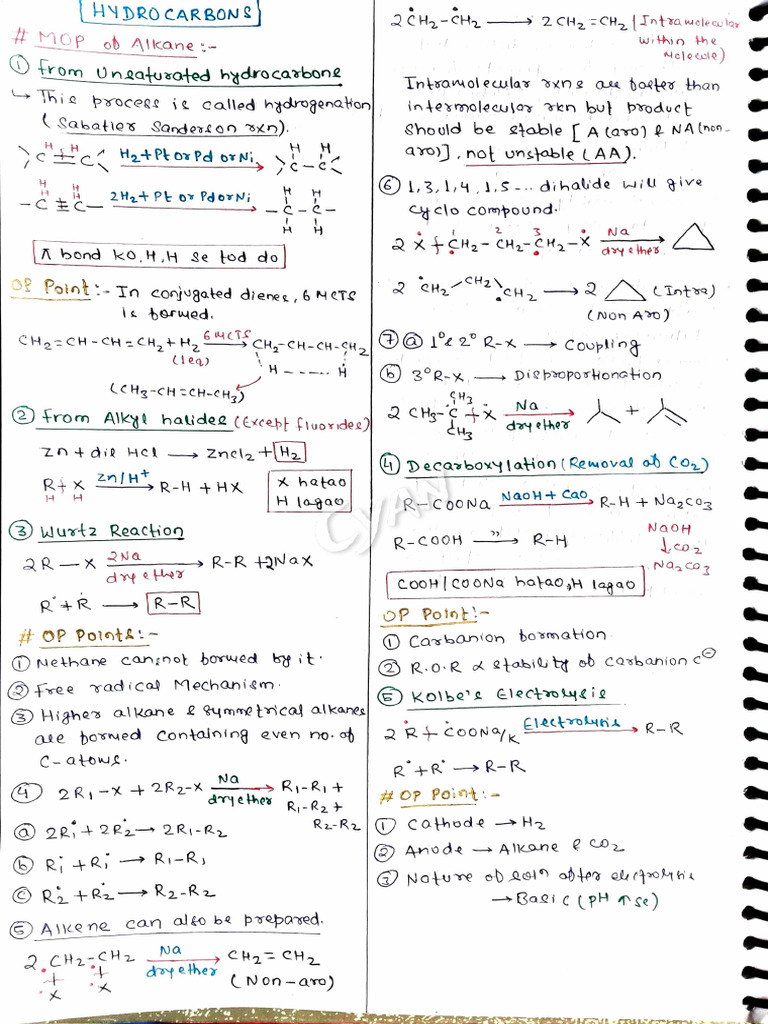 HYDROCARBONS
# MOP of Alkane:-
① From Unsaturated hydrocarbons
↳ This process is called hydrogenation
(Sabatier Sanderson rxn).
H H
>C=C< H2+Pt or Pd or Ni → H H >C-C<
H H
H H
-C≡C- 2H2+Pt or Pd or Ni → H H -C-C- H H
π bond KO, H, H se tod do
OP Point:- In conjugated dienes, 6 MCTS
is formed.
CH2=CH-CH=CH2+H2 6MCTS → CH2-CH-CH-CH2
(1eq)
H ----- H
(CH3-CH=CH-CH3)
② From Alkyl halides (Except fluorides)
Zn + dil HCl → Zncl2+ H2
R+X Zn/H+ → R-H + HX
H H
X hatao
H lagao
③ Wurtz Reaction
2R-X 2Na → R-R +2NaX
dry ether
R• + R• → R-R
# OP Points:-
① Methane cannot formed by it.
② Free radical Mechanism.
③ Higher alkane & symmetrical alkanes
are formed containing even no. of
C-atoms.
④ 2R1-X + 2R2-X Na → R1-R1 +
dry ether R1-R2 +
R2-R2
ⓐ 2R1• + 2R2• → 2R1-R2
ⓑ R1• + R1• → R1-R1
ⓒ R2• + R2• → R2-R2
⑤ Alkene can also be prepared.
2 CH2-CH2 Na → CH2=CH2
dry ether
X X
(Non-aro)
2 •CH2-•CH2 → 2 CH2=CH2 (Intramolecular
within the
Molecule)
Intramolecular rxns are faster than
intermolecular rxn but product
should be stable [A(aro) & NA(non-
aro)], not unstable (AA).
⑥ 1,3, 1,4, 1,5 ... dihalide will give
cyclo compound.
1 2 3
2 X+CH2-CH2-CH2-X Na →
dry ether
2 •CH2 CH2 •CH2 → 2 (Intra)
(Non Aro)
⑦ ⓐ 1° & 2° R-X → Coupling
ⓑ 3° R-X → Disproportionation
CH3
2 CH3-C+X Na → +
CH3 dry ether
④ Decarboxylation (Removal of CO2)
R-COONa NaOH + CaO → R-H + Na2CO3
R-COOH " → R-H
NaOH
↓CO2
Na2CO3
COOH/COONa hatao, H lagao
OP Point:-
① Carbanion formation
② R.O.R ∝ stability of carbanion C⊖
⑤ Kolbe's Electrolysis
2 R•+•COONa/K Electrolysis → R-R
R•+R• → R-R
# OP Point:-
① Cathode → H2
② Anode → Alkane & CO2
③ Nature of soln after electrolysis
→ Basic (pH ↑se)
CYAW